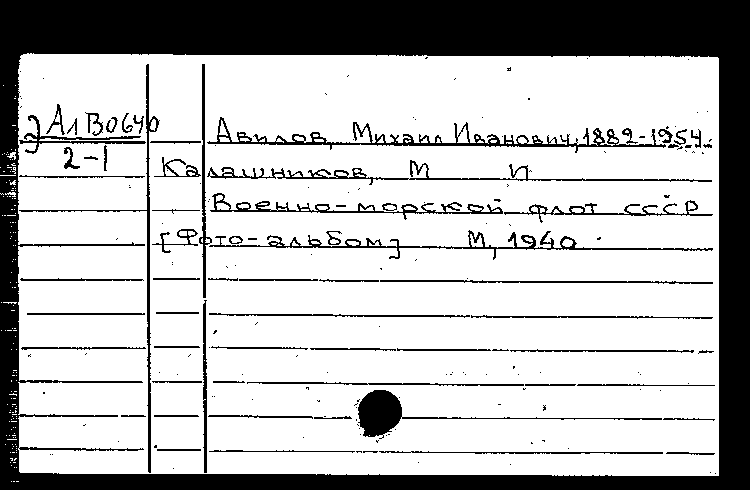 Э АлВ0640
2-1
Авилов, Михаил Иванович, 1882-1954.
Калашников, М И
Военно-морской флот СССР
[Фото-альбом] М, 1940.